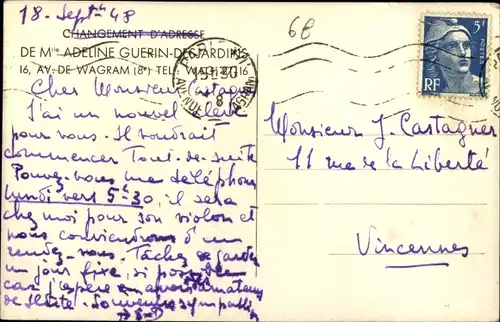 18. Sept. 48
CHANGEMENT D'ADRESSE
DE Mme ADELINE GUERIN-DESJARDINS
16, AV. DE WAGRAM (8e) TEL. WAG.
Cher Monsieur
J'ai un nouvel élève
pour vous. Il voudrait
commencer Tout-de-suite
Pouvez-vous me téléphoner
lundi vers 5h30, il sera
chez moi pour son violon et
nous conviendrons d'un
rendez-vous. Tâchez de garder
un jour fixe, si possible
car j'espère
de suite. Souvenirs sympathiques
6E
5F
POSTES
RF
PARIS
Monsieur J. Castagner
11 rue de la Liberté
Vincennes